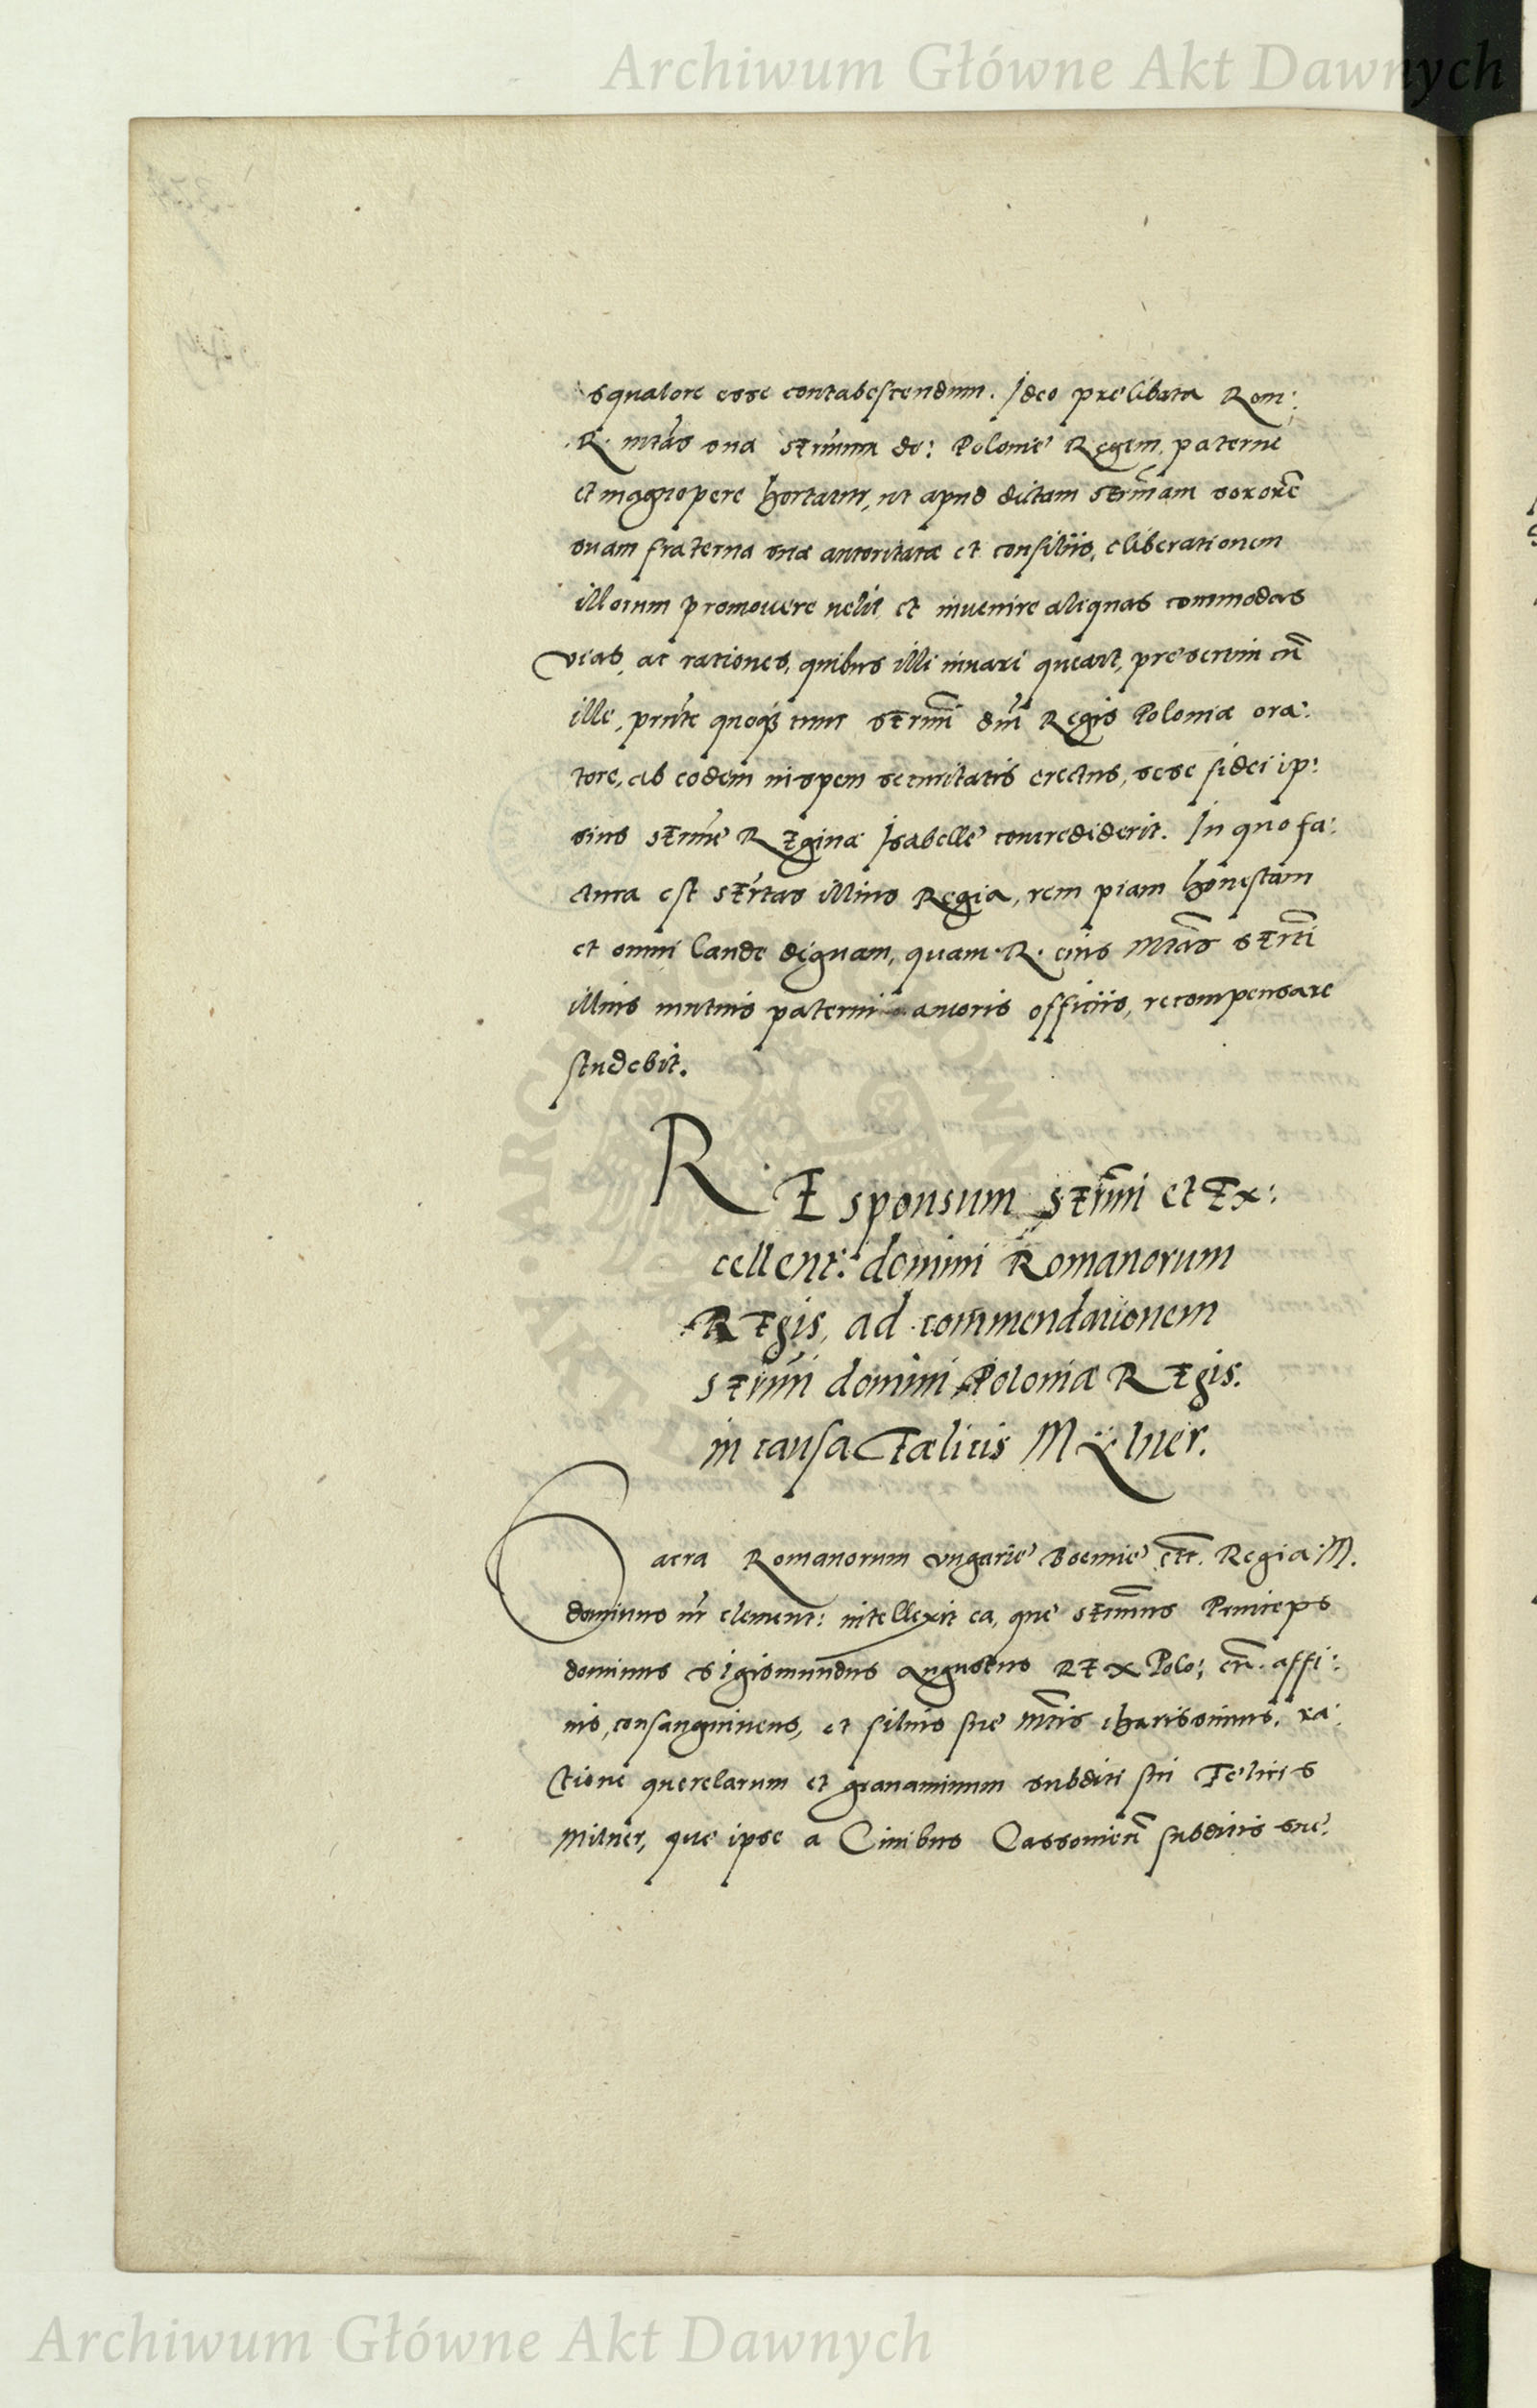 Archiwum Główne Akt Dawnych
squalore esse contabescendum. Ideo prelibata Rom:
.R. mtas sua sermum do: Polonie Regem paterne
et magnopere hortatur, ut apud dictam sermam sororē
suam fraterna sua autoritate et consiliis, eliberationem
illorum promovere velit, et invenire aliquas commodas
vias, ac rationes, quibus illi iuvari queant, presertim cū
ille, prñte quoq3 tunc sermi dni Regis Poloniæ ora:
tore, ab eodem in spem securitatis erectus, sese fidei ip:
sius serme Reginæ Isabelle concrediderit. In quo fa:
ctura est sertas illius Regia, rem piam honestam
et omni laude dignam, quam .R. eius Mtas serti
illius mutuis paterni amoris officiis, recompensare
studebit.
REsponsum sermi et Ex:
cellent: domini Romanorum
REgis, ad commendationem
sermi domini Poloniæ REgis.
in causa Fælicis Mÿlner.
Sacra Romanorum Vngarie Boemie etc. Regia M.
dominus nr clement: intellexit ea, que sermus Princeps
dominus Sigismundus Augustus REx Polo: etc. affi:
nis, consanguineus, et filius sue Mtis charissimus, ra:
ctione querelarum et gravaminum subditi sui Felicis
Milner, que ipse a Civibus Cassovien̄ subditis sue
ARCHIWUM GŁÓWNE AKT DAWNYCH
Archiwum Główne Akt Dawnych